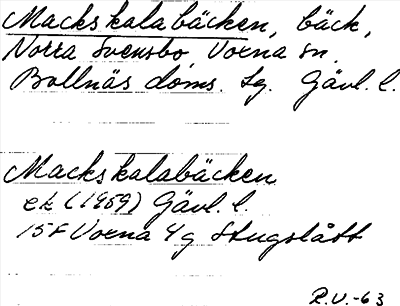 Mackskalabäcken, bäck,
Norra Svensbo, Voxna sn.
Bollnäs doms. tg. Gävl. l.
Mackskalabäcken
ek (1959) Gävl. l.
15F Voxna 4g Stugslått
R.U.-63